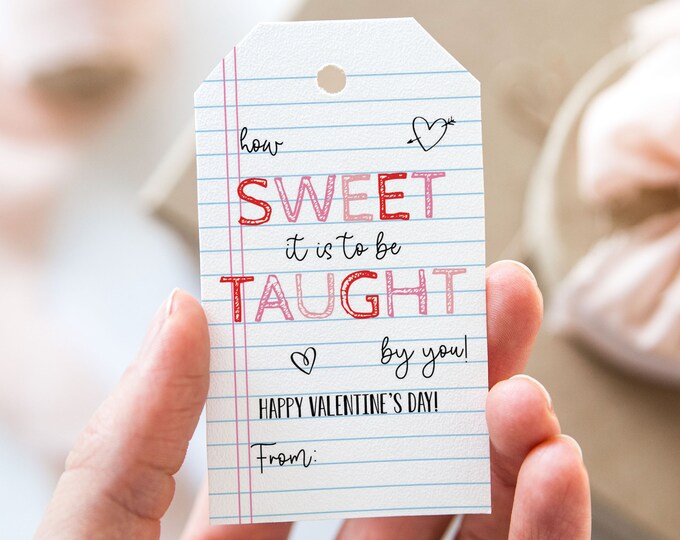 how
SWEET
it is to be
TAUGHT
by you!
HAPPY VALENTINE'S DAY!
From: